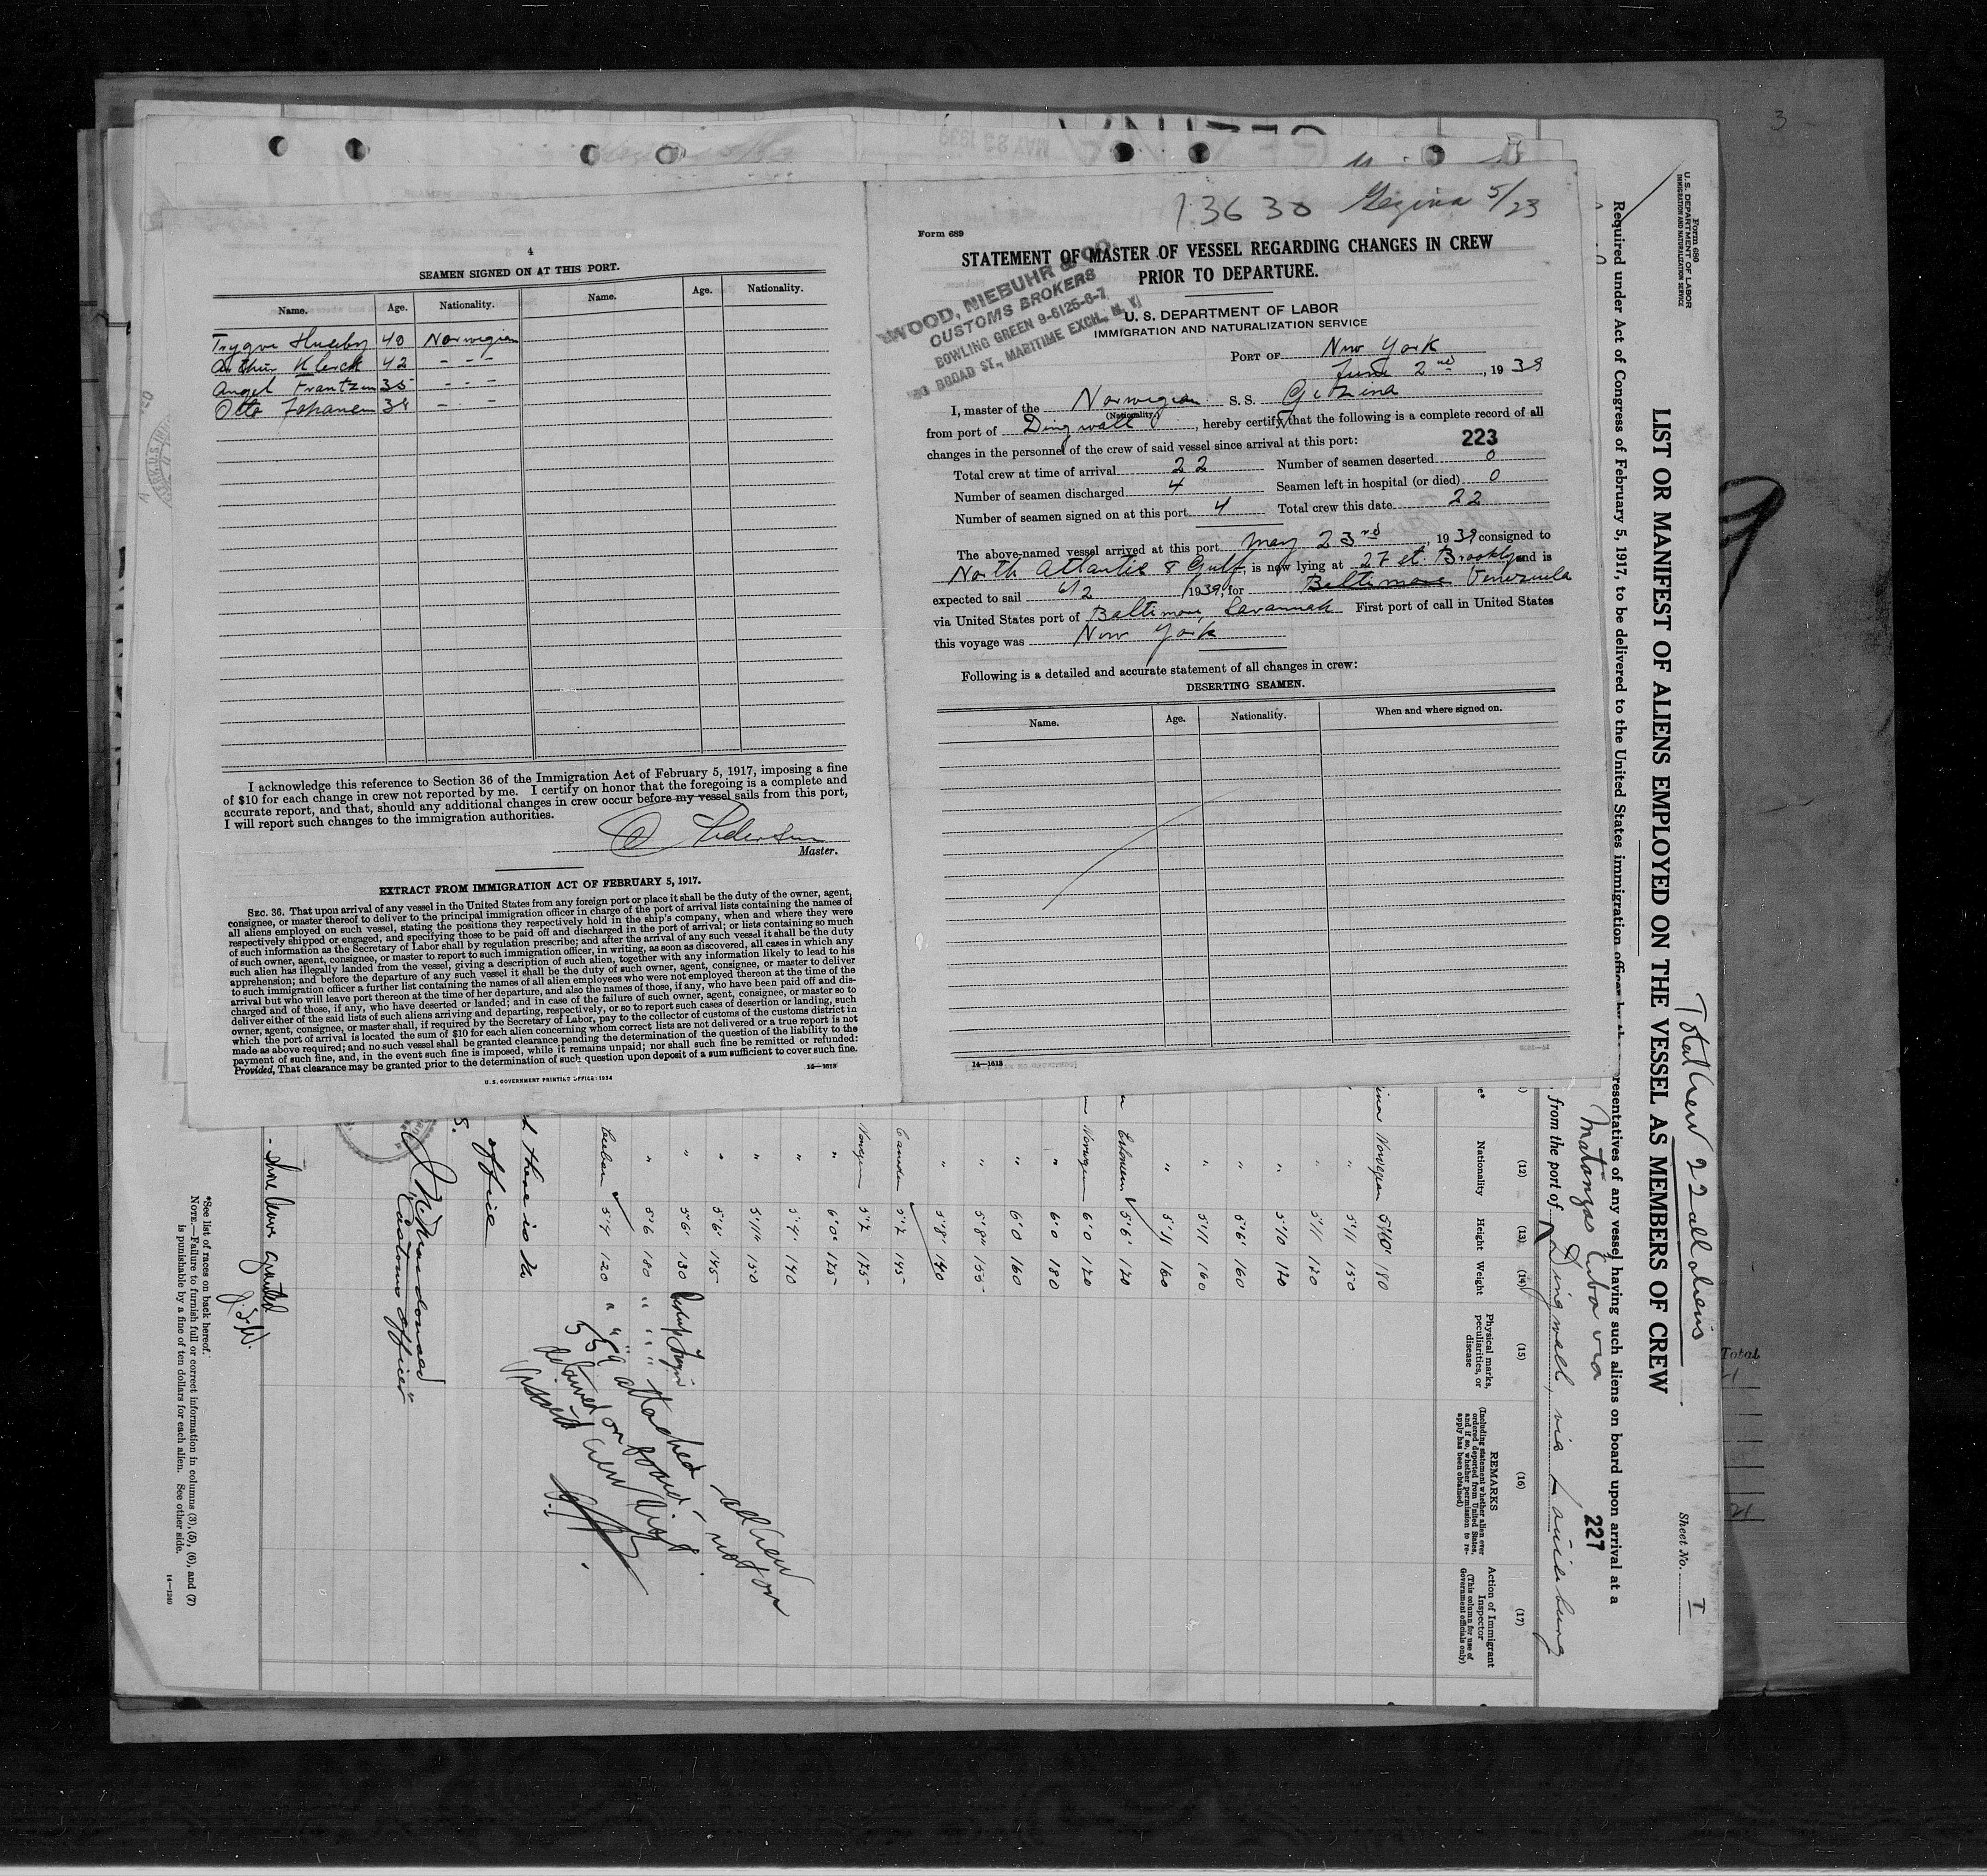 4
SEAMEN SIGNED ON AT THIS PORT.
Name. Age. Nationality. Name. Age. Nationality.
Trygve Huseby 40 Norwegian
Arthur Klerck 42 - - -
Angel Frantzen 35 - - -
Otto Johansen 34 - - -
I acknowledge this reference to Section 36 of the Immigration Act of February 5, 1917, imposing a fine
of $10 for each change in crew not reported by me. I certify on honor that the foregoing is a complete and
accurate report, and that, should any additional changes in crew occur before my vessel sails from this port,
I will report such changes to the immigration authorities.
O Pedersen
Master.
EXTRACT FROM IMMIGRATION ACT OF FEBRUARY 5, 1917.
SEC. 36. That upon arrival of any vessel in the United States from any foreign port or place it shall be the duty of the owner, agent,
consignee, or master thereof to deliver to the principal immigration officer in charge of the port of arrival lists containing the names of
all aliens employed on such vessel, stating the positions they respectively hold in the ship's company, when and where they were
respectively shipped or engaged, and specifying those to be paid off and discharged in the port of arrival; or lists containing so much
of such information as the Secretary of Labor shall by regulation prescribe; and after the arrival of any such vessel it shall be the duty
of such owner, agent, consignee, or master to report to such immigration officer, in writing, as soon as discovered, all cases in which any
such alien has illegally landed from the vessel, giving a description of such alien, together with any information likely to lead to his
apprehension; and before the departure of any such vessel it shall be the duty of such owner, agent, consignee, or master to deliver
to such immigration officer a further list containing the names of all alien employees who were not employed thereon at the time of the
arrival but who will leave port thereon at the time of her departure, and also the names of those, if any, who have been paid off and dis-
charged and of those, if any, who have deserted or landed; and in case of the failure of such owner, agent, consignee, or master so to
deliver either of the said lists of such aliens arriving and departing, respectively, or so to report such cases of desertion or landing, such
owner, agent, consignee, or master shall, if required by the Secretary of Labor, pay to the collector of customs of the customs district in
which the port of arrival is located the sum of $10 for each alien concerning whom correct lists are not delivered or a true report is not
made as above required; and no such vessel shall be granted clearance pending the determination of the question of the liability to the
payment of such fine, and, in the event such fine is imposed, while it remains unpaid; nor shall such fine be remitted or refunded:
Provided, That clearance may be granted prior to the determination of such question upon deposit of a sum sufficient to cover such fine.
U.S. GOVERNMENT PRINTING OFFICE: 1934
13630 Gezina 5/23
Form 689
STATEMENT OF MASTER OF VESSEL REGARDING CHANGES IN CREW
PRIOR TO DEPARTURE.
WOOD, NIEBUHR & CO.
CUSTOMS BROKERS
BOWLING GREEN 9-6125-6-7
BROAD ST., MARITIME EXCH., N. Y.
U. S. DEPARTMENT OF LABOR
IMMIGRATION AND NATURALIZATION SERVICE
PORT OF New York
June 2nd, 1939
I, master of the Norwegian S. S. Gezina
(Nationality.)
from port of Dingwall, hereby certify that the following is a complete record of all
changes in the personnel of the crew of said vessel since arrival at this port: 223
Total crew at time of arrival 22 Number of seamen deserted 0
Number of seamen discharged 4 Seamen left in hospital (or died) 0
Number of seamen signed on at this port 4 Total crew this date 22
The above-named vessel arrived at this port May 23rd, 1939 consigned to
North Atlantic & Gulf, is now lying at 27 st. Brooklyn and is
expected to sail 6/2 1939, for Baltimore Venezuela
via United States port of Baltimore, Savannah First port of call in United States
this voyage was New York
Following is a detailed and accurate statement of all changes in crew:
DESERTING SEAMEN.
Name. Age. Nationality. When and where signed on.
14—1613
Form 680
U. S. DEPARTMENT OF LABOR
IMMIGRATION AND NATURALIZATION SERVICE
Total Crew 22 all aliens
Sheet No. I
LIST OR MANIFEST OF ALIENS EMPLOYED ON THE VESSEL AS MEMBERS OF CREW
Required under Act of Congress of February 5, 1917, to be delivered to the United States immigration officer by the representatives of any vessel having such aliens on board upon arrival at a
Matanzas Cuba via 227
from the port of Dingwall, via Louisburg
(12) (13) (14) (15) (16) (17)
Nationality Height Weight Physical marks, peculiarities, or disease
REMARKS
(Including statement whether alien ever ordered deported from United States, and if so, whether permission to re-apply has been obtained)
Action of Immigrant Inspector
(This column for use of Government officials only)
Norwegian 5'10" 180
" 5'11 150
" 5'11 170
" 5'10 170
" 5'6 160
" 5'11 160
" 5'11 160
Estonian 5'6 170
Norwegian 6'0 170
" 6'0 180
" 6'0 160
" 5'8" 155
" 5'8" 140
Canadian 5'7 145
Norwegian 5'7 175
" 6'0" 175
" 5'9" 140
" 5'11" 150
" 5'6" 145
" 5'6" 130
" 5'6 180
Cuban 5'4 120
there is no
office
J. McK. Macdonald
"Customs Officer"
559 attached
detained on board
Crew List
- Shore leave granted
*See list of races on back hereof.
NOTE.—Failure to furnish full or correct information in columns (3), (5), (6), and (7)
is punishable by a fine of ten dollars for each alien. See other side.
14—1240
Total
21
3